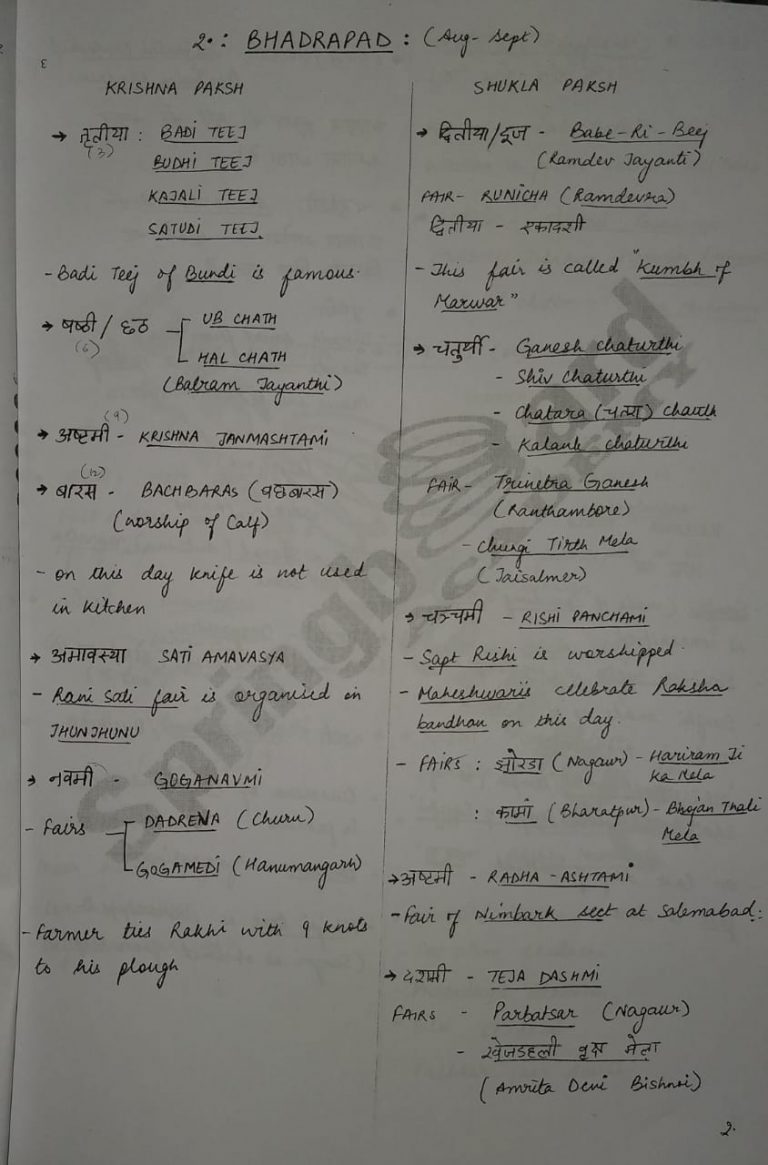 2.: BHADRAPAD : (Aug- Sept)
KRISHNA PAKSH
→ तृतीया : BADI TEEJ
(3)
BUDHI TEEJ
KAJALI TEEJ
SATUDI TEEJ
- Badi Teej of Bundi is famous.
→ षष्ठी / छठ
(6)
UB CHATH
HAL CHATH
(Balram Jayanthi)
→ अष्टमी - KRISHNA JANMASHTAMI
(12)
→ बारस - BACHBARAS (बछबारस)
(worship of Calf)
- on this day knife is not used
in kitchen
→ अमावस्या SATI AMAVASYA
- Rani Sati fair is organised in
JHUNJHUNU
→ नवमी - GOGANAVMI
- Fairs
DADREWA (Churu)
GOGAMEDI (Hanumangarh)
- Farmer ties Rakhi with 9 knots
to his plough
SHUKLA PAKSH
→ द्वितीया/दूज - Babe-Ri-Beej
(Ramdev Jayanti)
FAIR- RUNICHA (Ramdevra)
द्वितीया - एकादशी
- This fair is called "Kumbh of
Marwar"
→ चतुर्थी - Ganesh chaturthi
- Shiv chaturthi
- Chatara (चतरा) chauth
- Kalank chaturthi
FAIR- Trinetra Ganesh
(Ranthambore)
- Chungi Tirth Mela
(Jaisalmer)
→ - RISHI PANCHAMI
- Sapt Rishi is worshipped.
- Maheshwaris celebrate Raksha
bandhan on this day.
- FAIRS : झोरडा (Nagaur) - Hariram Ji
Ka Mela
: कामां (Bharatpur) - Bhojan Thali
Mela
→ अष्टमी - RADHA - ASHTAMI
- Fair of Nimbark sect at Salemabad.
→ दशमी - TEJA DASHMI
FAIRS - Parbatsar (Nagaur)
- खेजडली वृक्ष मेला
(Amrita Devi Bishnoi)
2.